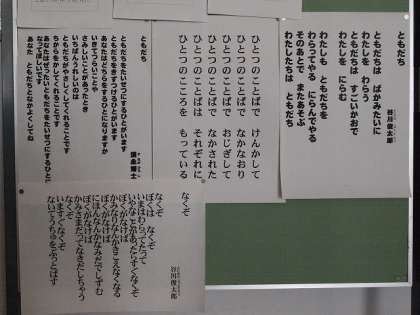 ともだち
谷川俊太郎
ともだちは ばかみたいに
わたしを わらう
ともだちは すごいかおで
わたしを にらむ
わたしも ともだちを
わらってやる にらんでやる
そのあとで またあそぶ
わたしたちは ともだち
ひとつのことばで けんかして
ひとつのことばで なかなおり
ひとつのことばで おじぎして
ひとつのことばで なかされた
ひとつのことばは それぞれに
ひとつのこころを もっている
ともだち
須永博士
ともだちをたいせつにするひとがいます
ともだちをきずつけるひとがいます
あなたはどちらをするひとになりますか
いきてつらいことや
さみしいことがあったとき
いちばんうれしいのは
ともだちがやさしくしてくれることです
ちからをかしてくれることです
あなたはぜったいともだちをたいせつにするひとに
なってほしいです
あなた ともだちとなかよくしてね
なくぞ
谷川俊太郎
なくぞ
ぼくは なくぞ
いまはわらってたって
いやなことがあったらすぐなくぞ
ぼくがなけば
かみなりなんかきこえなくなる
ぼくがなけば
にほんなんかなみだでしずむ
ぼくがなけば
かみさまだってなきだしちゃう
なくぞ
いますぐなくぞ
ないてうちゅうをぶっとばす